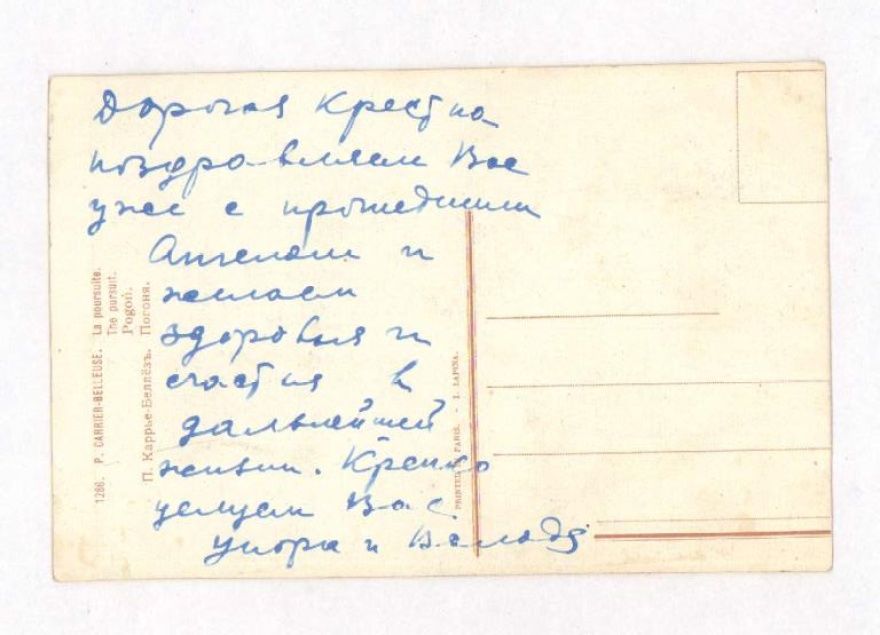 Дорогая Крестна
поздравляем Вас
уже с прошедшим
Ангелом и
желаем
здоровья и
счастья в
дальнейшей
жизни. Крепко
целуем Вас
и Володя
1266. P. CARRIER-BELLEUSE. La poursuite.
The pursuit.
Pogoń.
П. Каррье-Беллёзъ. Погоня.
PRINTED IN PARIS. - I. LAPINA.